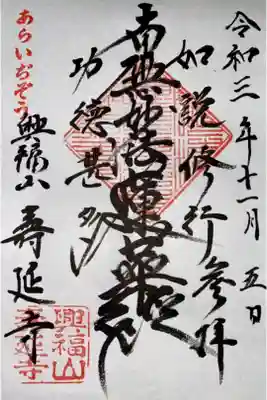 令和三年十一月五日
如説修行 参拝
南無妙法蓮華経
功徳甚多
興福山 寿延寺
あらいぢぞう
興福山
寿延寺